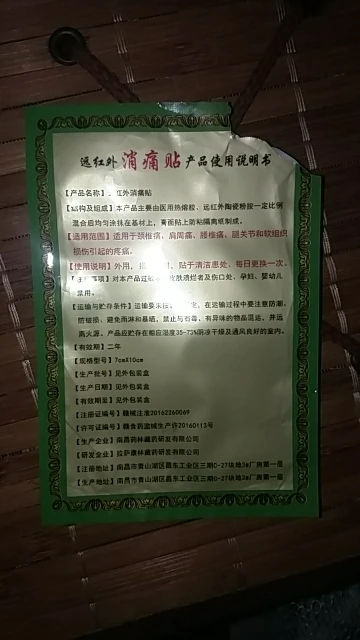 远红外消痛贴产品使用说明书
【产品名称】 红外消痛贴
【结构及组成】本产品主要由医用热熔胶、远红外陶瓷粉按一定比例
混合后均匀涂抹在基材上，膏面贴上防粘隔离纸制成。
【适用范围】适用于颈椎痛、肩周痛、腰椎痛、腿关节和软组织
损伤引起的疼痛。
【使用说明】外用，揭 贴于清洁患处、每日更换一次。
对本产品过敏 皮肤溃烂者及伤口处、孕妇、婴幼儿
禁用。
【运输与贮存条件】运输要求按 定，在运输过程中要注意防潮、
防磕损、避免雨淋和暴晒，禁止与有毒、有异味的物品混运，并远
离火源，产品应贮存在相应湿度35-73%阴凉干燥及通风良好的室内。
【有效期】二年
【规格型号】7cmX10cm
【生产批号】见外包装盒
【生产日期】见外包装盒
【有效期至】见外包装盒
【注册证编号】赣械注准20162260069
【许可证编号】赣食药监械生产许20160113号
【生产企业】南昌药林藏药研发有限公司
【研发企业】拉萨康林藏药研发有限公司
【注册地址】南昌市青山湖区昌东工业区三期D-27块地3#厂房第一层
【生产地址】南昌市青山湖区昌东工业区三期D-27块地3#厂房第一层